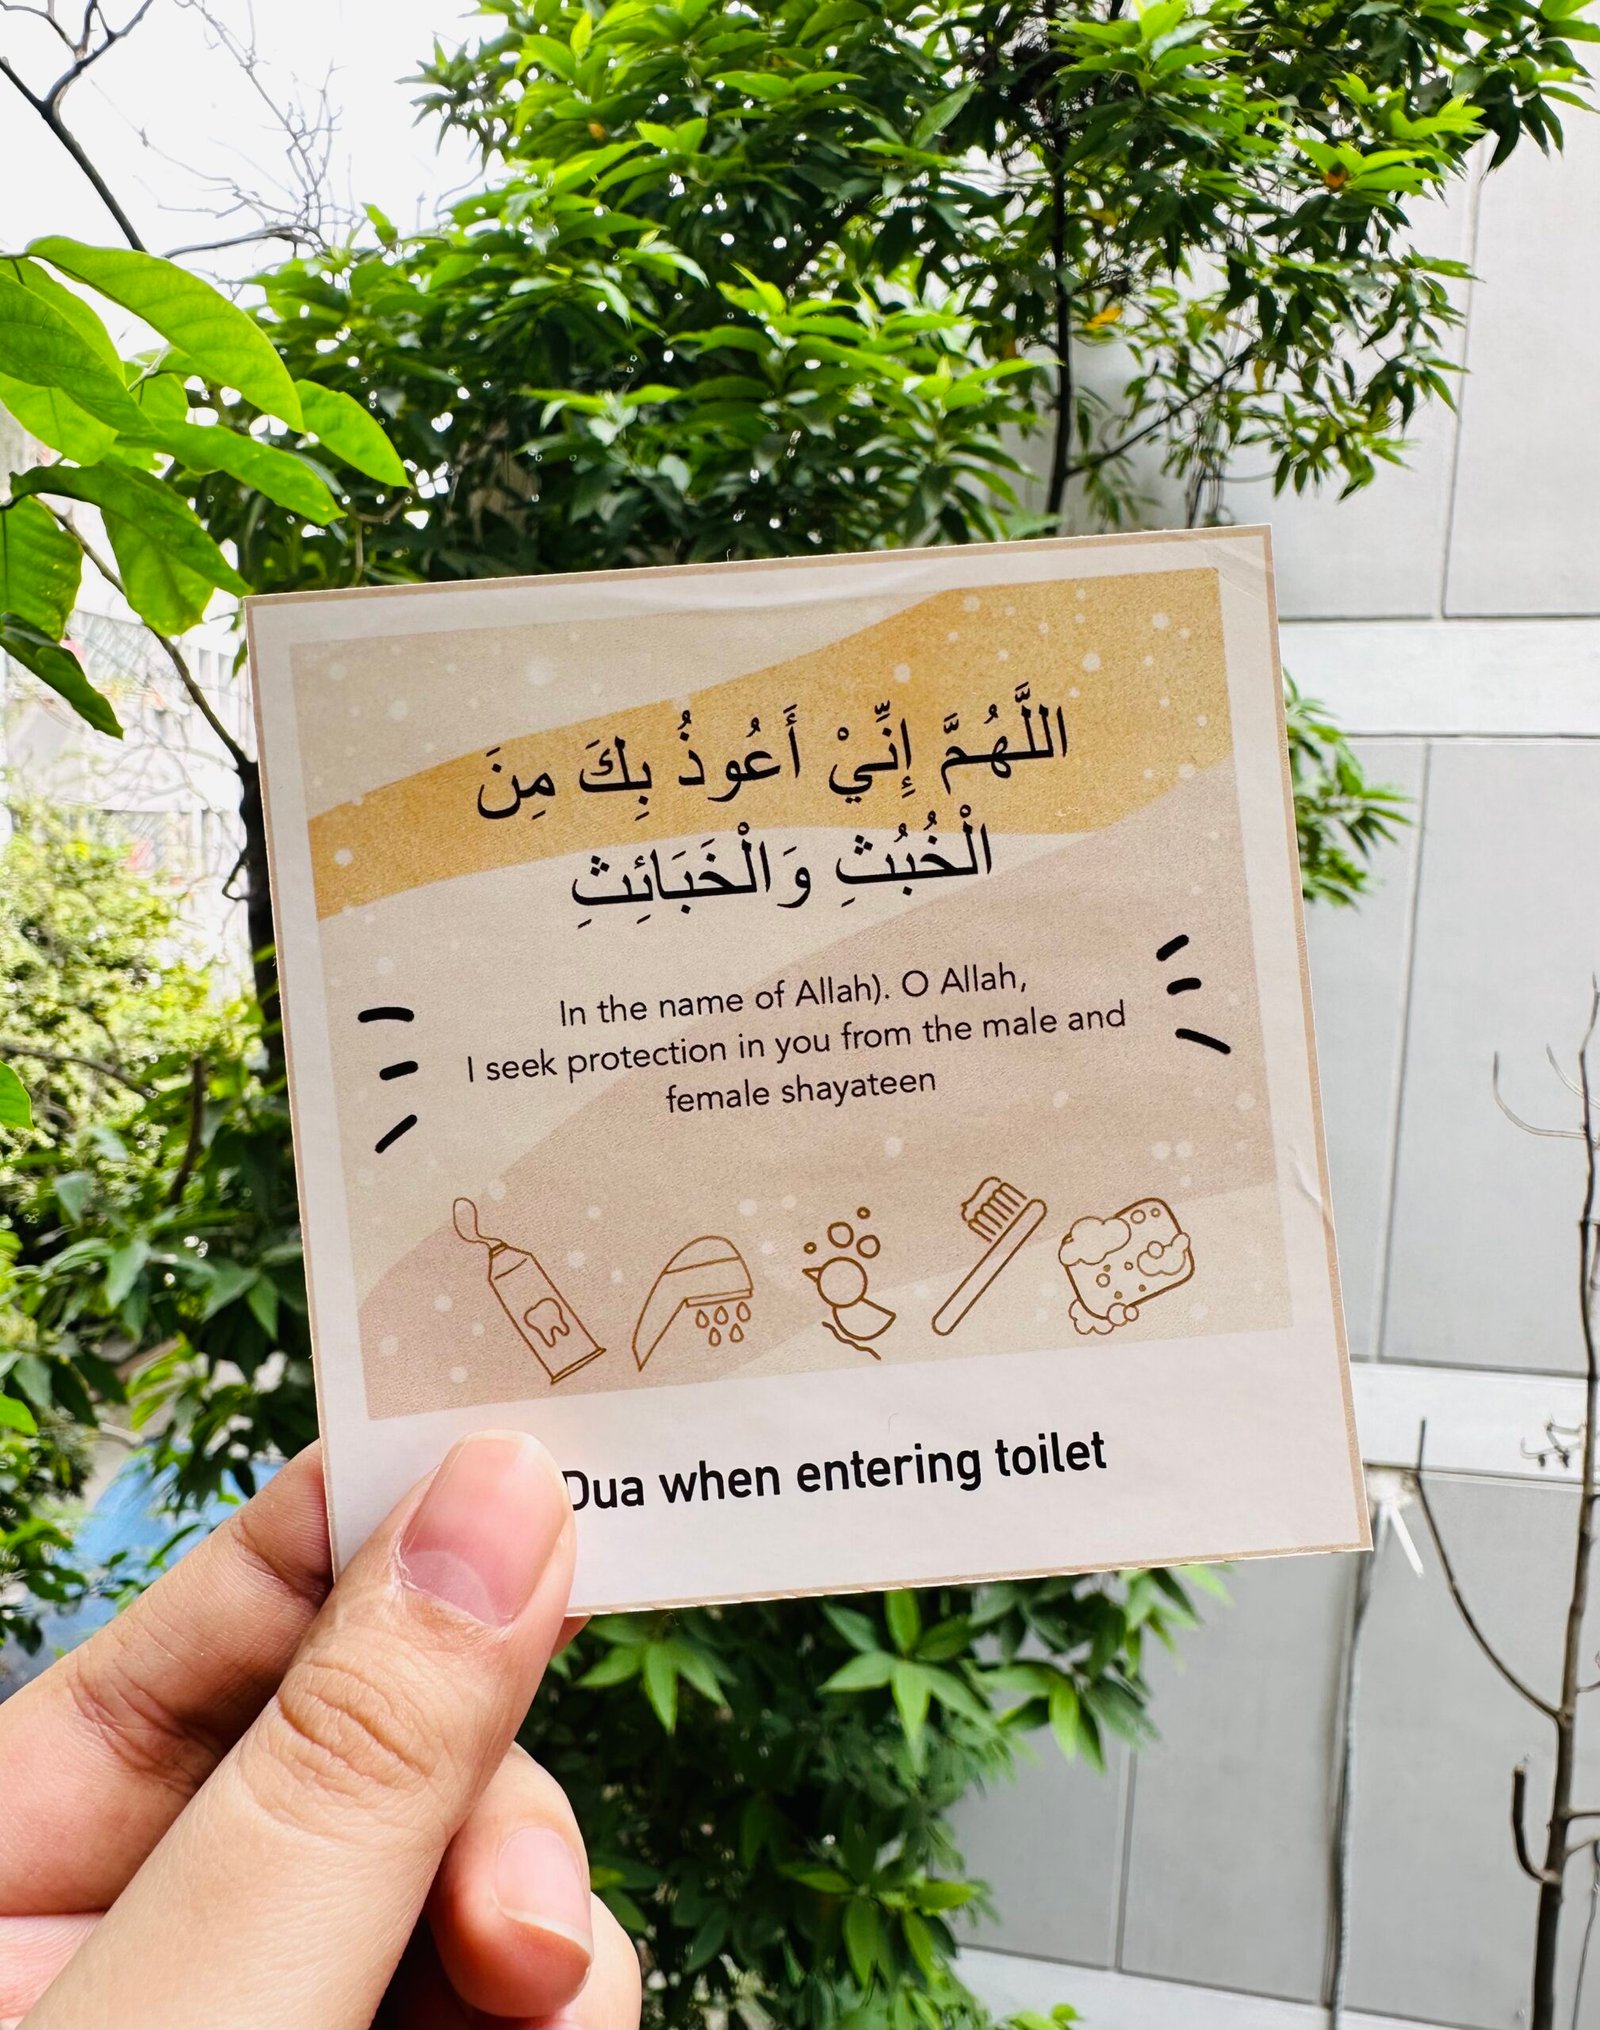 اللَّهُمَّ إِنِّيْ أَعُوذُ بِكَ مِنَ
الْخُبُثِ وَالْخَبَائِثِ
In the name of Allah). O Allah,
I seek protection in you from the male and
female shayateen
Dua when entering toilet